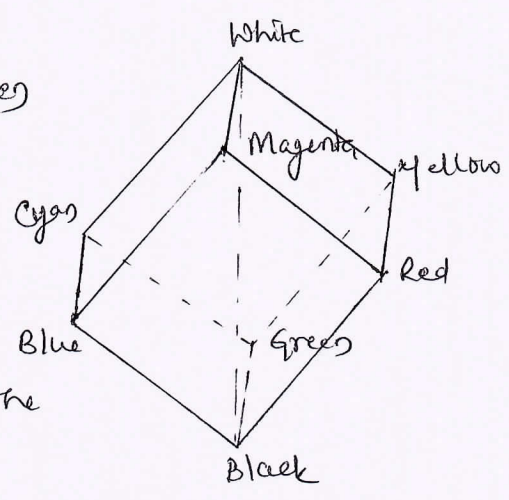 White
Magenta
Yellow
Cyan
Red
Blue
Green
he
Black